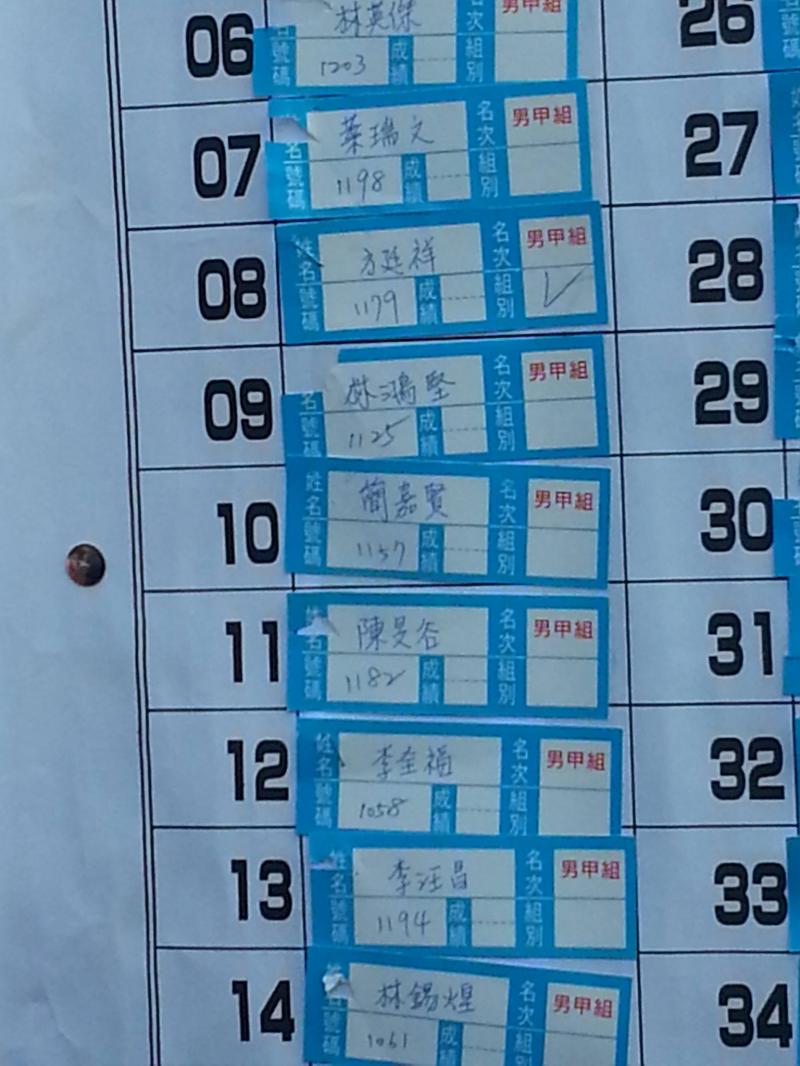 06 林英傑 名次 男甲組 26
號碼 1203 成績 組別
07 葉瑞文 名次 男甲組 27
名 號碼 1198 成績 組別
08 姓名 方廷祥 名次 男甲組 28
號碼 1179 成績 組別 ✓
09 林鴻堅 名次 男甲組 29
名 號碼 1125 成績 組別
10 姓名 簡嘉賢 名次 男甲組 30
號碼 1157 成績 組別
11 姓名 陳旻谷 名次 男甲組 31
號碼 1182 成績 組別
12 姓名 李全福 名次 男甲組 32
號碼 1058 成績 組別
13 姓名 李汪昌 名次 男甲組 33
號碼 1194 成績 組別
14 姓名 林錫煌 名次 男甲組 34
號 1061 成 組